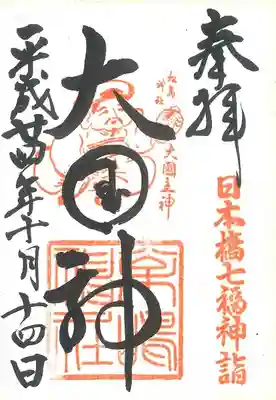 奉拝
日本橋七福神詣
松島神社
大國主神
大国神
平成廿四年十月十四日